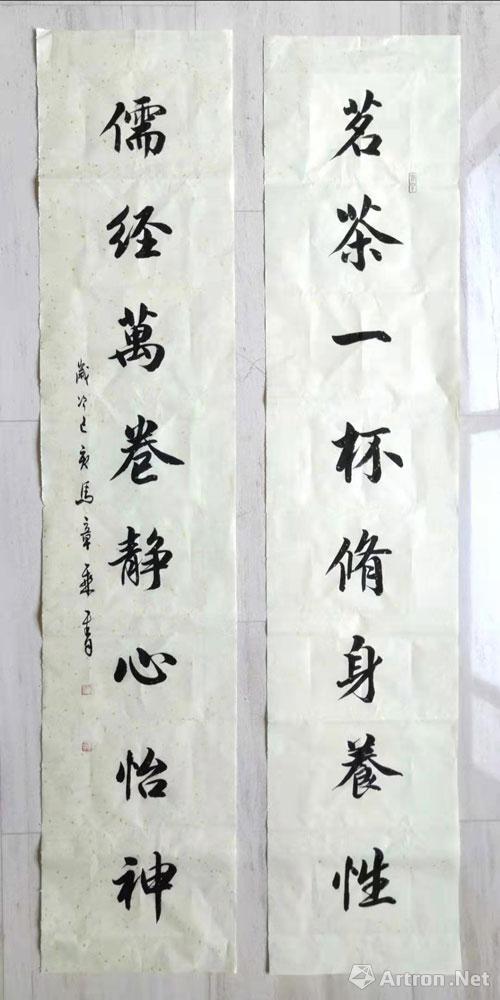 茗茶一杯脩身養性
儒经萬卷静心怡神
歲次己亥馬章乘書
Artron.Net